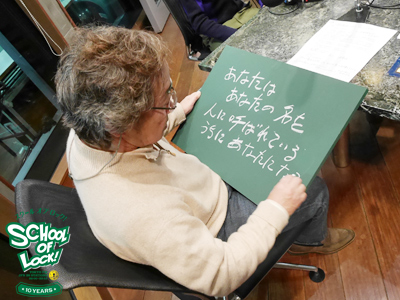 あなたは
あなたの名を
人に呼ばれている
うちにあなたにする
SCHOOL
OF
LOCK!
10 YEARS